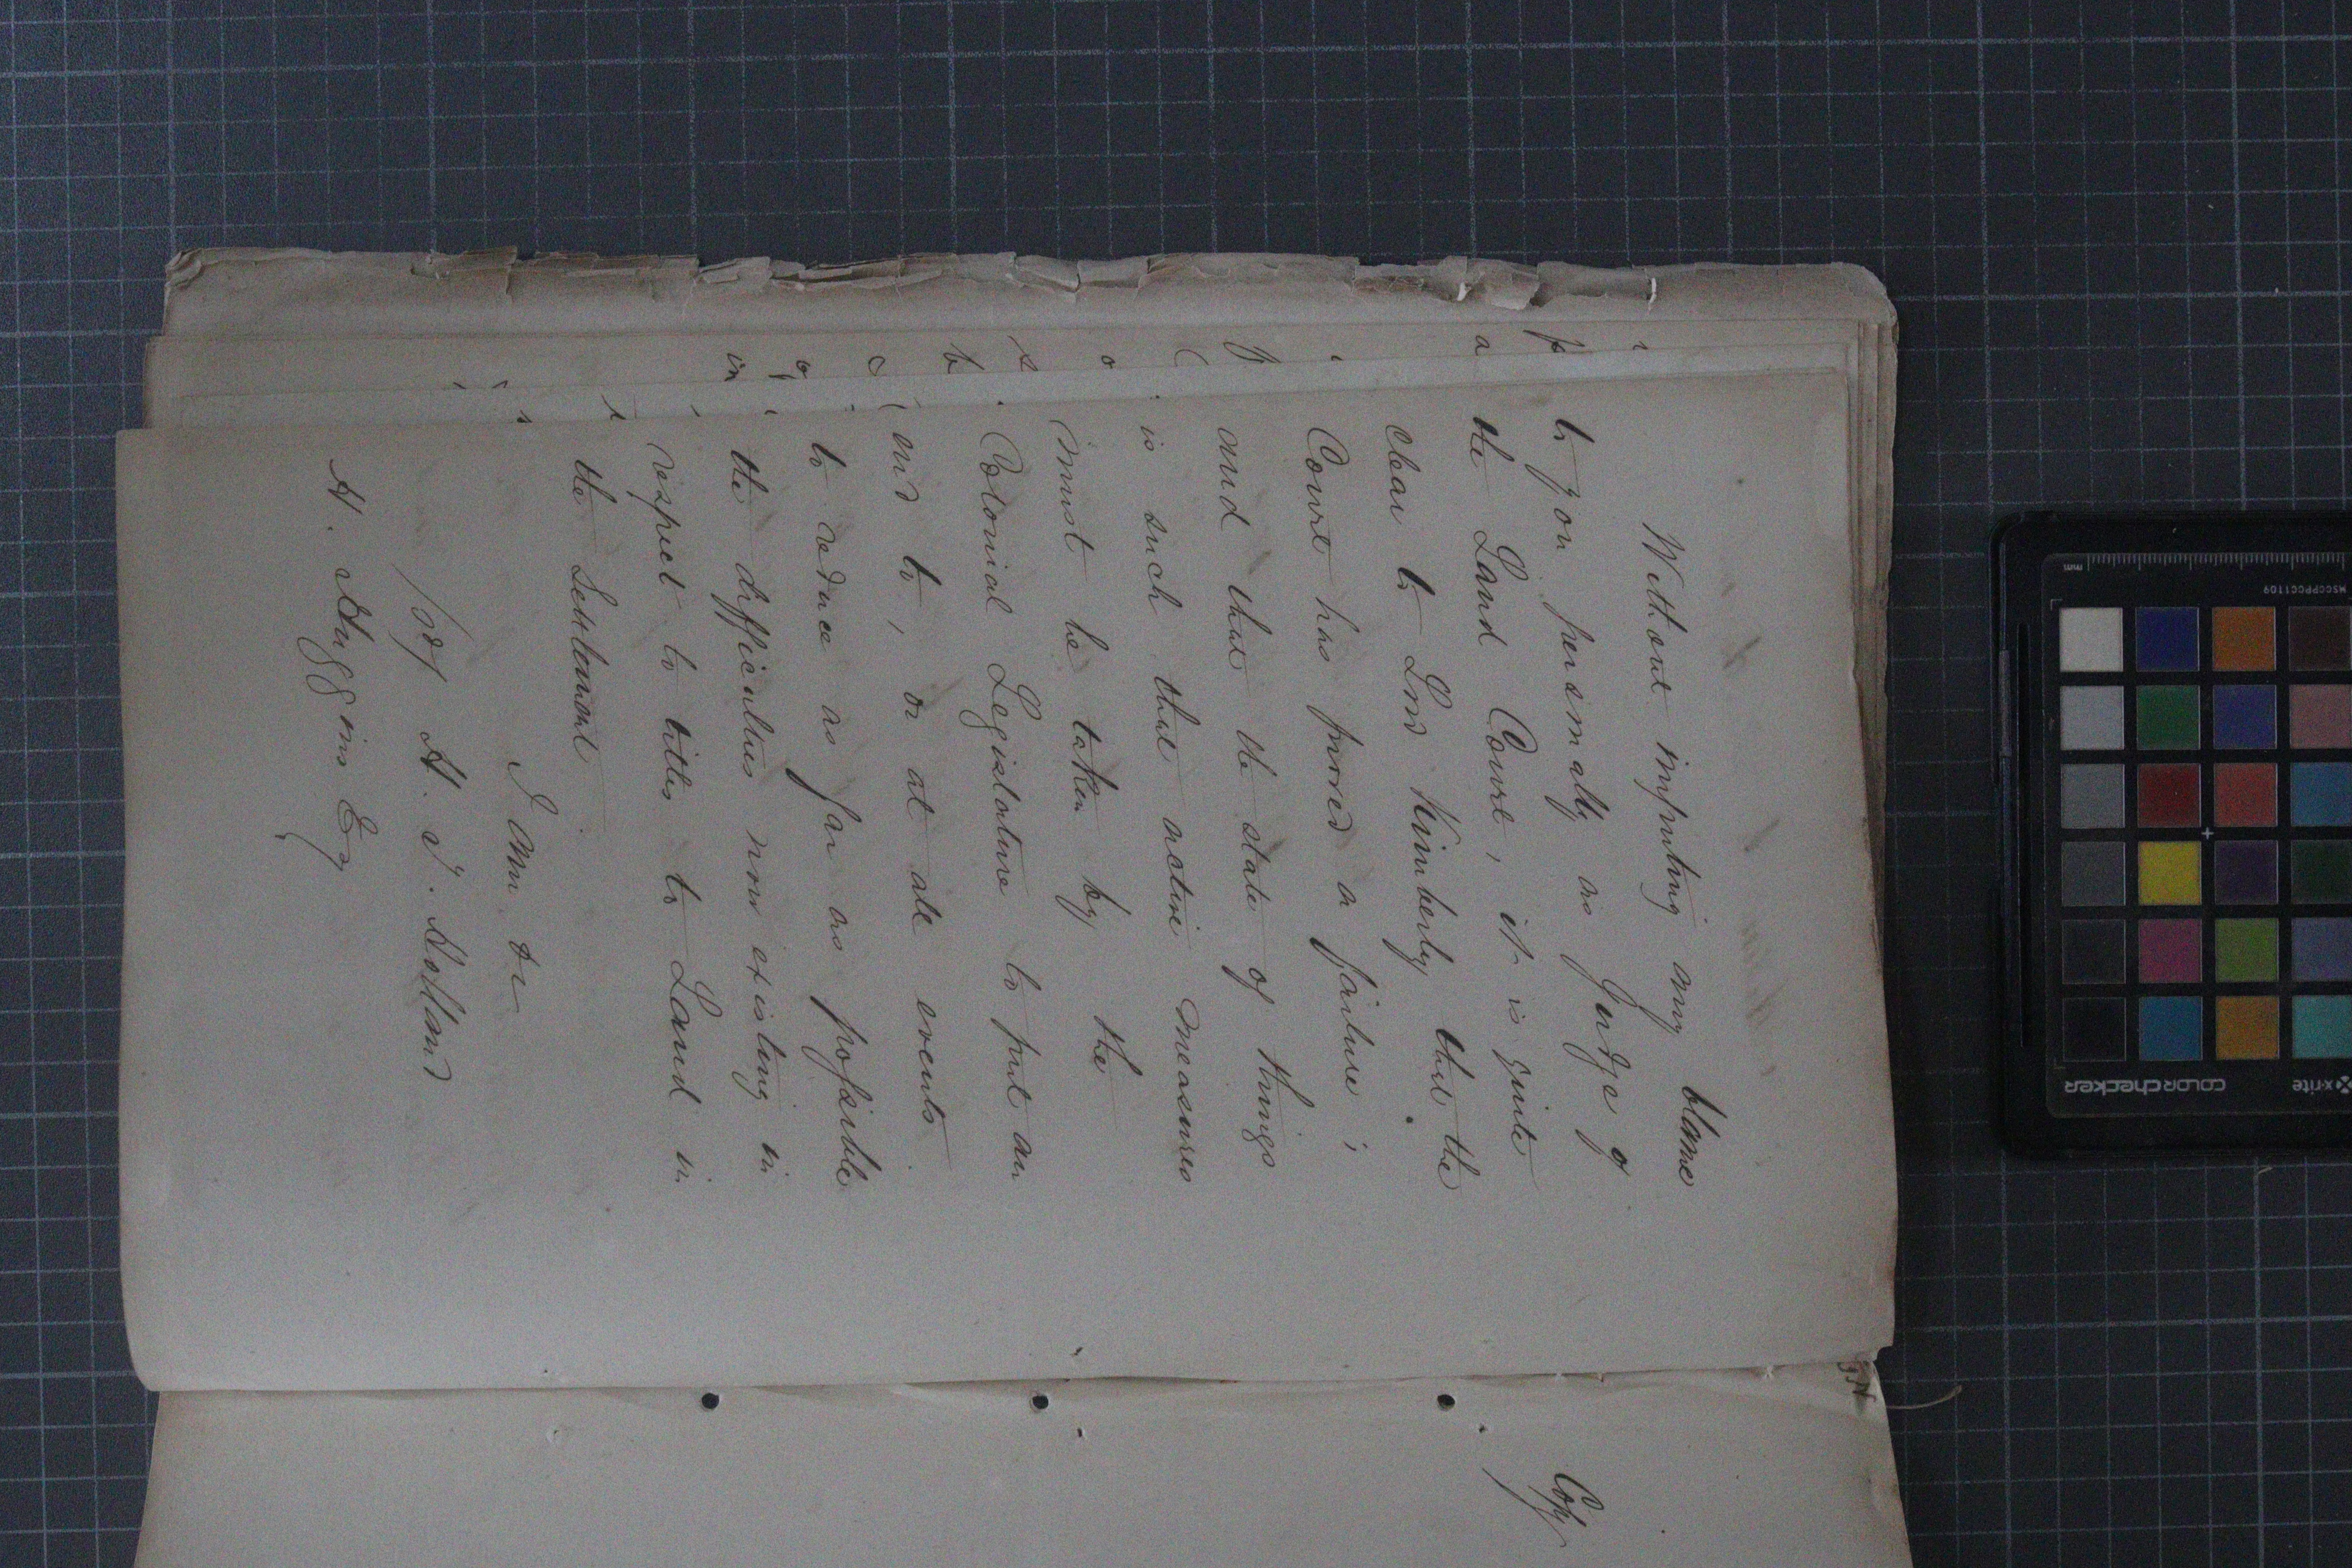 Without imputing any blame
to you personally as Judge of
the Land Court, it is quite
clear to Lord Kimberly that the
Court has proved a failure;
and that the state of things
is such that active measures
must be taken by the
Colonial Legislature to put an
end to, or at all events
to reduce as far as possible
the difficulties now existing in
respect to titles to Land in
the Settlement
I am &c
H. T. Holland
H. Huggins Esq
Copy
mm
MSCCPPCC1109
colorchecker
x-rite